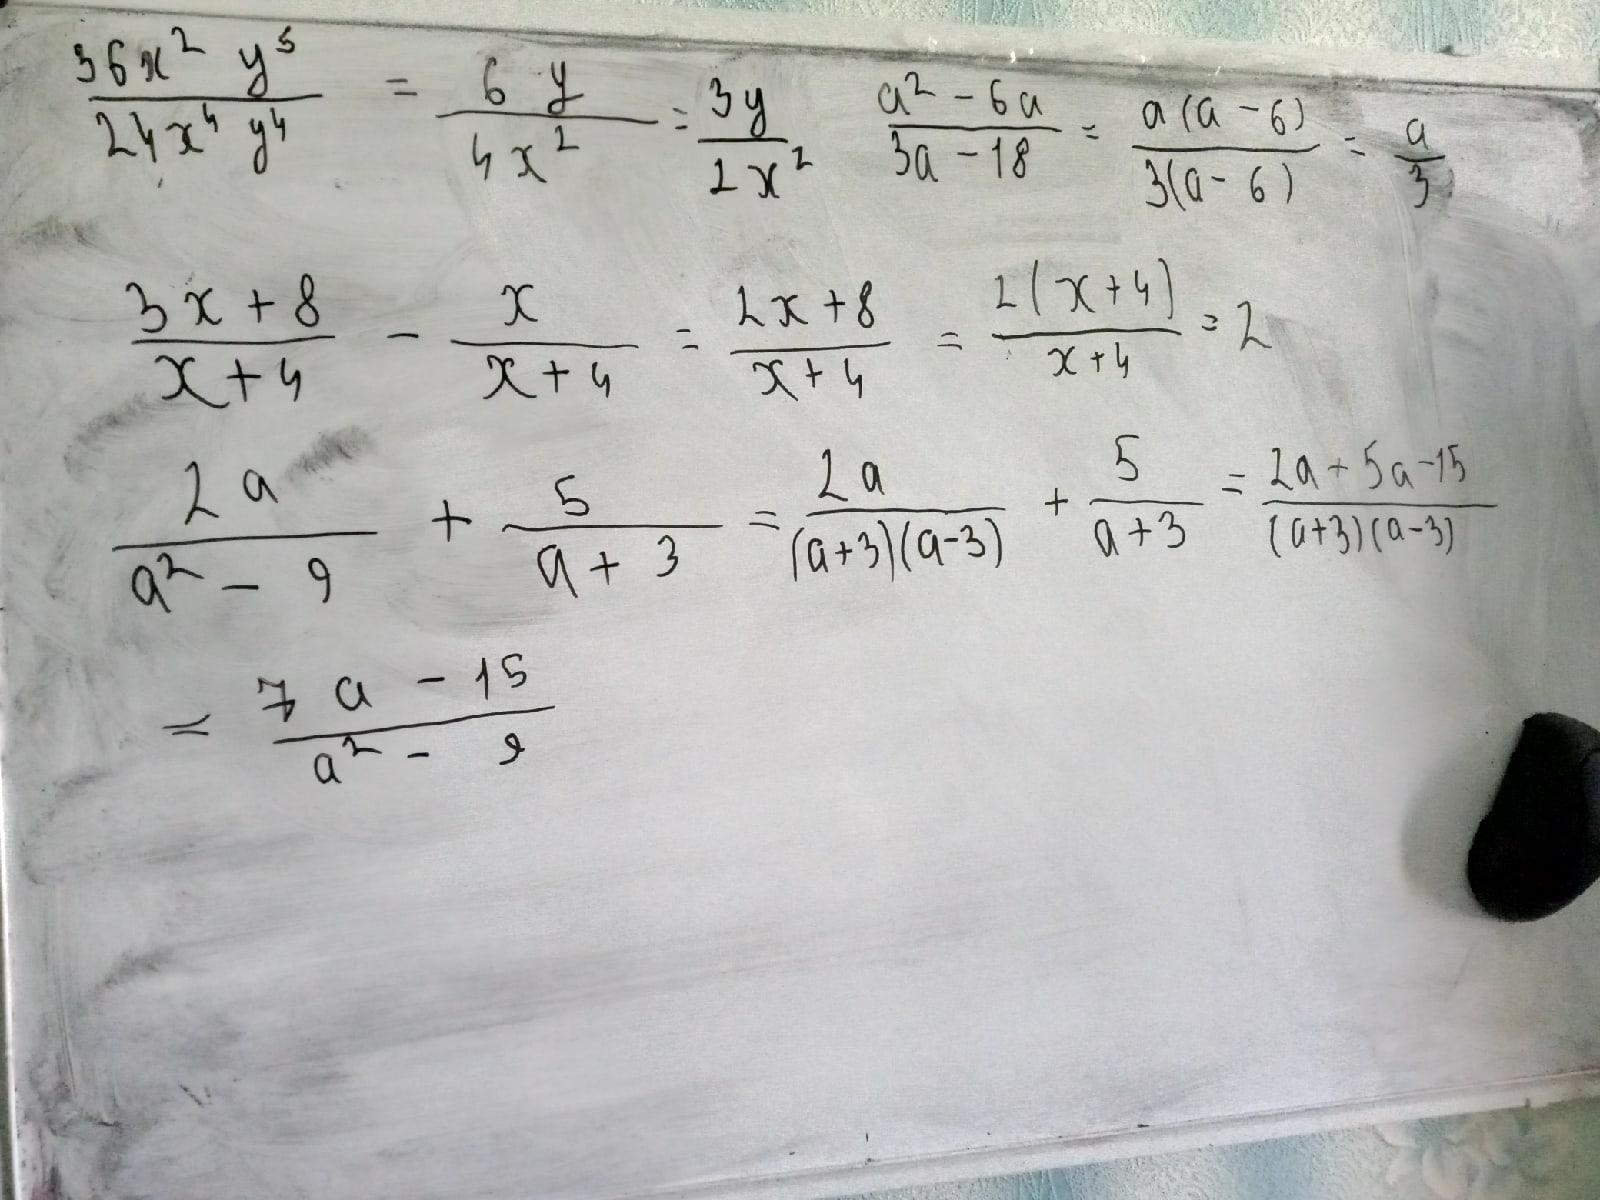 36x² y⁵ / 24x⁴ y⁴ = 6y / 4x² = 3y / 2x²   a² - 6a / 3a - 18 = a(a - 6) / 3(a - 6) = a / 3
3x + 8 / x + 4 - x / x + 4 = 2x + 8 / x + 4 = 2(x + 4) / x + 4 = 2
2a / a² - 9 + 5 / a + 3 = 2a / (a+3)(a-3) + 5 / a + 3 = 2a + 5a - 15 / (a+3)(a-3)
= 7a - 15 / a² - 9